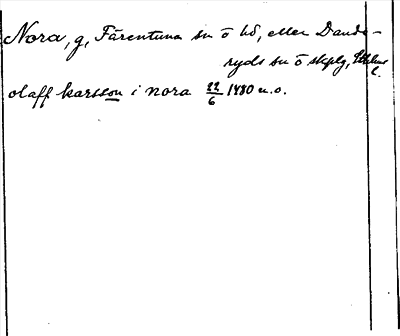 Nora, g, Färentuna sn o hd, eller Dande-
ryds sn o skplg, Sthlms
l.
olaff karsson i nora 22/6 1480 u.o.